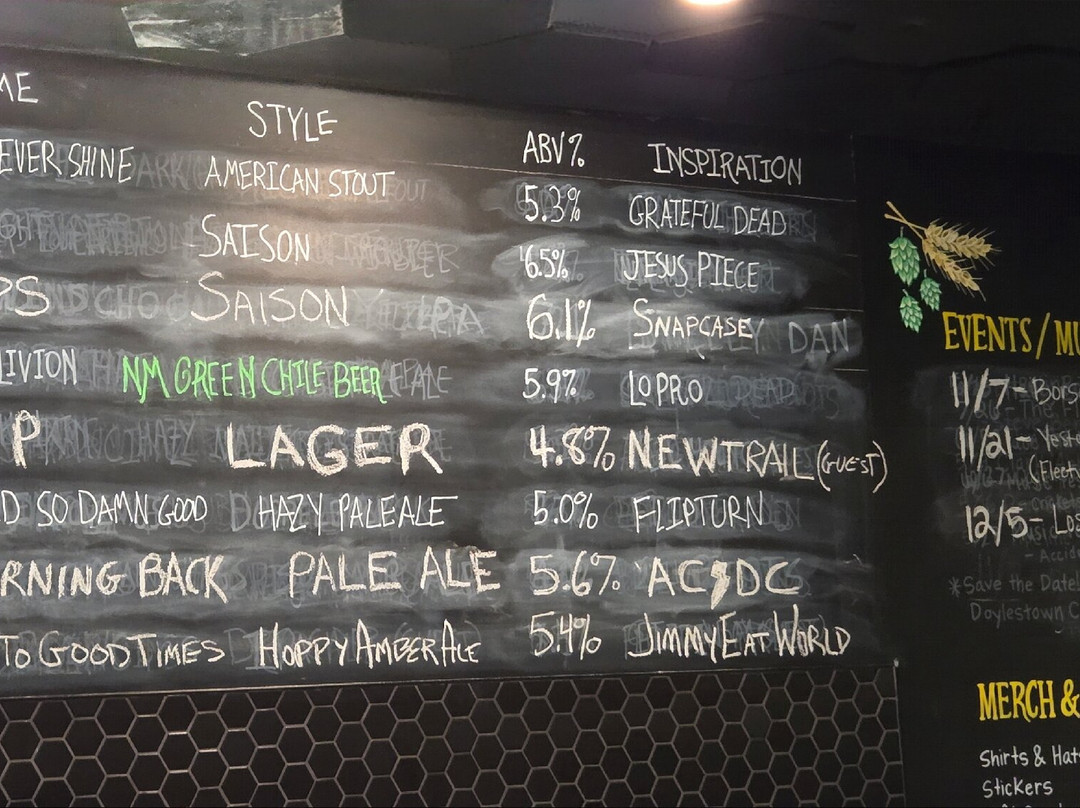 ME STYLE ABV% INSPIRATION
EVER SHINE AMERICAN STOUT 5.3% GRATEFUL DEAD
SAISON 6.5% JESUS PIECE
PS SAISON 6.1% SNAPCASE
LIVION NM GREEN CHILE BEER 5.9% LO PRO
P LAGER 4.8% NEWTRAIL (GUEST)
D SO DAMN GOOD HAZY PALE ALE 5.0% FLIPTURN
RNING BACK PALE ALE 5.6% AC⚡DC
TO GOOD TIMES HOPPY AMBER ALE 5.4% JIMMY EAT WORLD
EVENTS / MU
11/7 - Bors
11/21 - Yest
(Fleet
12/5 - Los
- Accid
*Save the Date!
Doylestown C
MERCH &
Shirts & Hat
Stickers